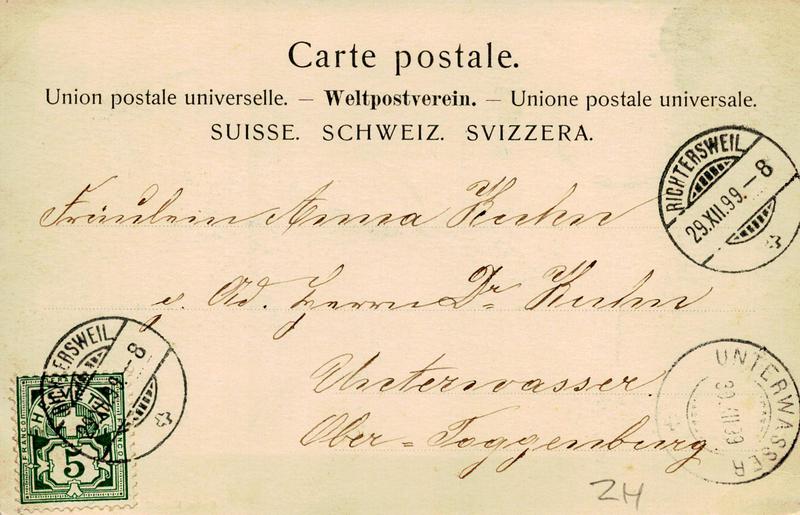 Carte postale.
Union postale universelle. — Weltpostverein. — Unione postale universale.
SUISSE. SCHWEIZ. SVIZZERA.
RICHTERSWEIL
29.XII.99.–8
Fräulein Anna Kuhn
p. Ad. Herrn Dr Kuhn
Unterwasser.
Ober=Toggenburg
ERSWEIL
–8
HELVETIA
FRANCO
5
UNTERWASSER
30.XII.99
ZH